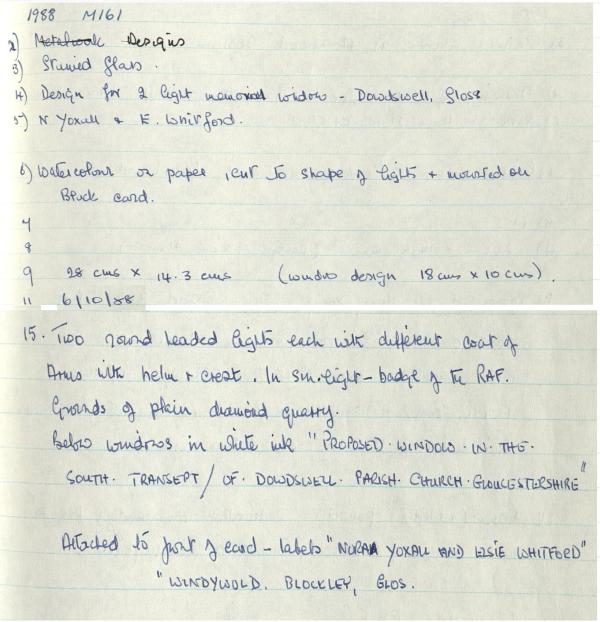 1988 M161
2) Metalwork Designs
3) Stained Glass.
4) Design for 2 light memorial window - Dowdswell, Gloss
5) N Yoxall & E. Whitford.
6) Watercolour on paper, cut to shape of lights + mounted on
Black card.
7
8
9 28 cms x 14.3 cms (window design 18 cms x 10 cms).
11 6/10/88
15. Two round headed lights each with different coat of
Arms with helm + crest. In sm. light - badge of the RAF.
Grounds of plain diamond quarry.
Below windows in white ink "PROPOSED. WINDOW. IN. THE.
SOUTH. TRANSEPT / OF. DOWDSWELL. PARISH. CHURCH. GLOUCESTERSHIRE"
Attached to front of card - labels "NORA YOXALL AND ELSIE WHITFORD"
"WINDYWOLD. BLOCKLEY, GLOS.